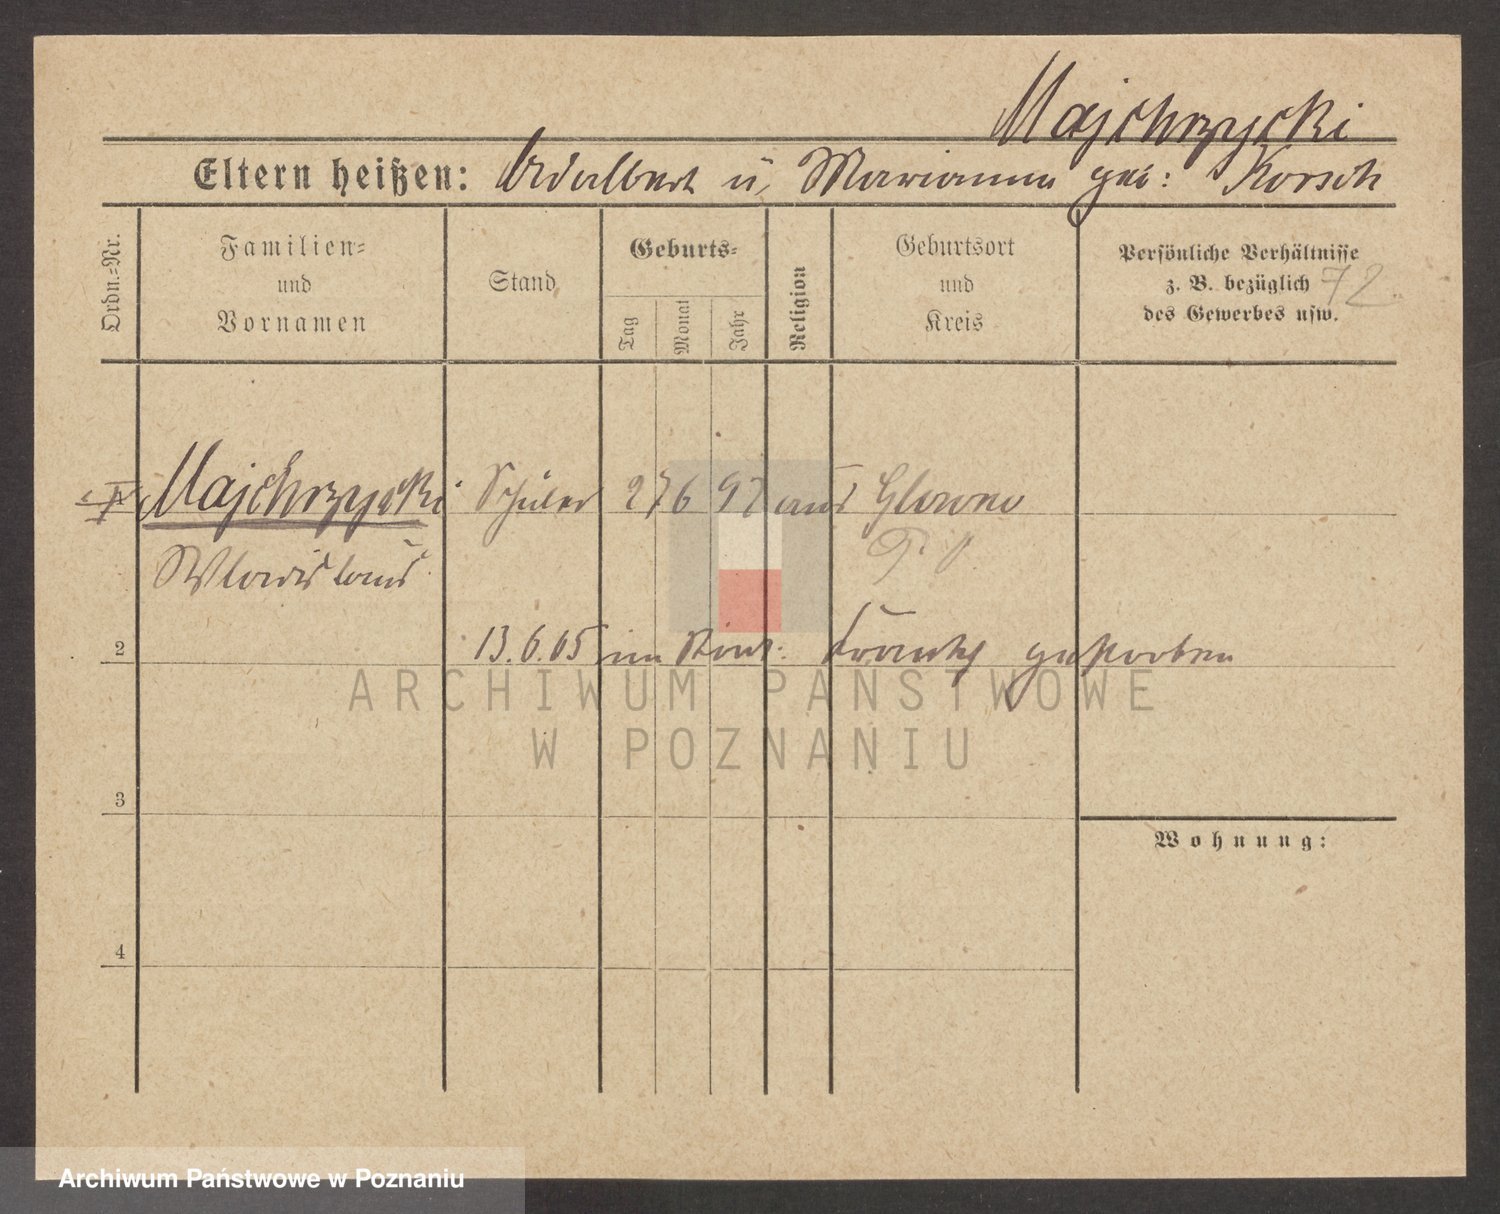 Majchrzycki
Eltern heißen: Adalbert u. Marianna geb: Korsch
Ordn.=Nr.
Familien=
und
Vornamen
Stand
Geburts=
Tag
Monat
Jahr
Religion
Geburtsort
und
Kreis
Persönliche Verhältnisse
z. B. bezüglich
des Gewerbes usw.
72
Majchrzycki Schüler 27 6 97 aus Glowno
Wladislaus
2
13.6.05 im gestorben
3
Wohnung:
4
ARCHIWUM PAŃSTWOWE
W POZNANIU
Archiwum Państwowe w Poznaniu